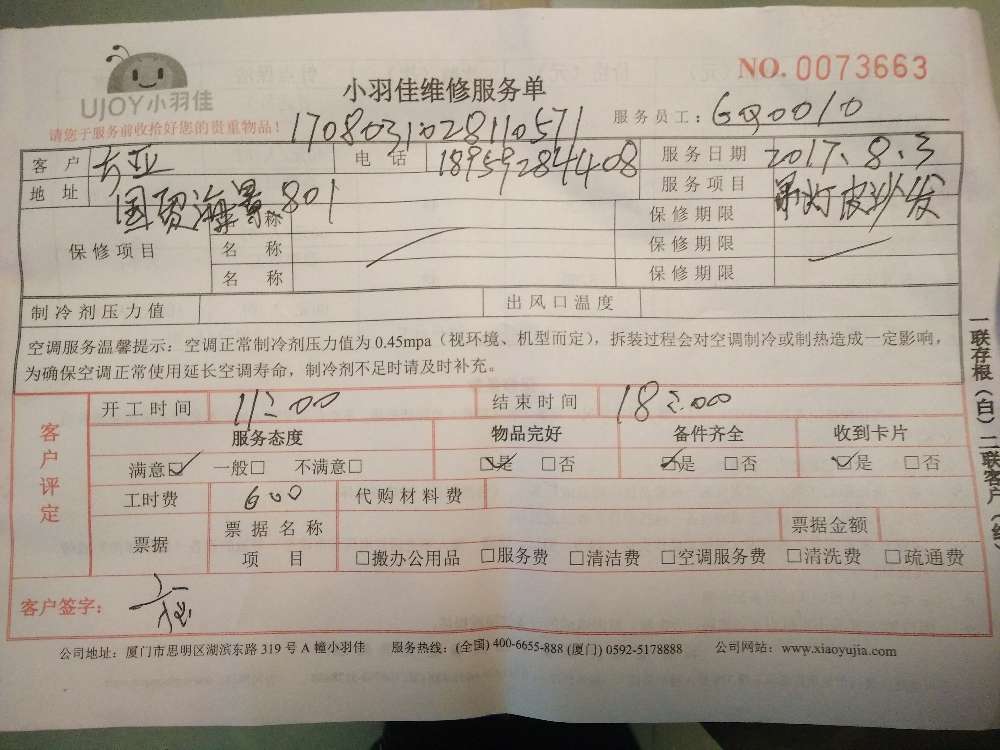 UJOY小羽佳
NO. 0073663
小羽佳维修服务单
请您于服务前收拾好您的贵重物品!
1708031028110571
服务员工: GQ0010
客户 方亚 电话 18959284408 服务日期 2017.8.3
地址 国贸海景.801 服务项目 吊灯皮沙发
保修项目 名称 保修期限
名称 保修期限
名称 保修期限
制冷剂压力值 出风口温度
空调服务温馨提示:空调正常制冷剂压力值为0.45mpa(视环境、机型而定),拆装过程会对空调制冷或制热造成一定影响,
为确保空调正常使用延长空调寿命,制冷剂不足时请及时补充。
客户评定
开工时间 11:00 结束时间 18:00
服务态度 物品完好 备件齐全 收到卡片
满意☑ 一般□ 不满意□ ☑是 □否 ☑是 □否 ☑是 □否
工时费 600 代购材料费
票据 票据名称 票据金额
项目 □搬办公用品 □服务费 □清洁费 □空调服务费 □清洗费 □疏通费
客户签字:
公司地址:厦门市思明区湖滨东路319号A幢小羽佳 服务热线:(全国)400-6655-888 (厦门) 0592-5178888 公司网站:www.xiaoyujia.com
一联存根(白)二联客户(红)